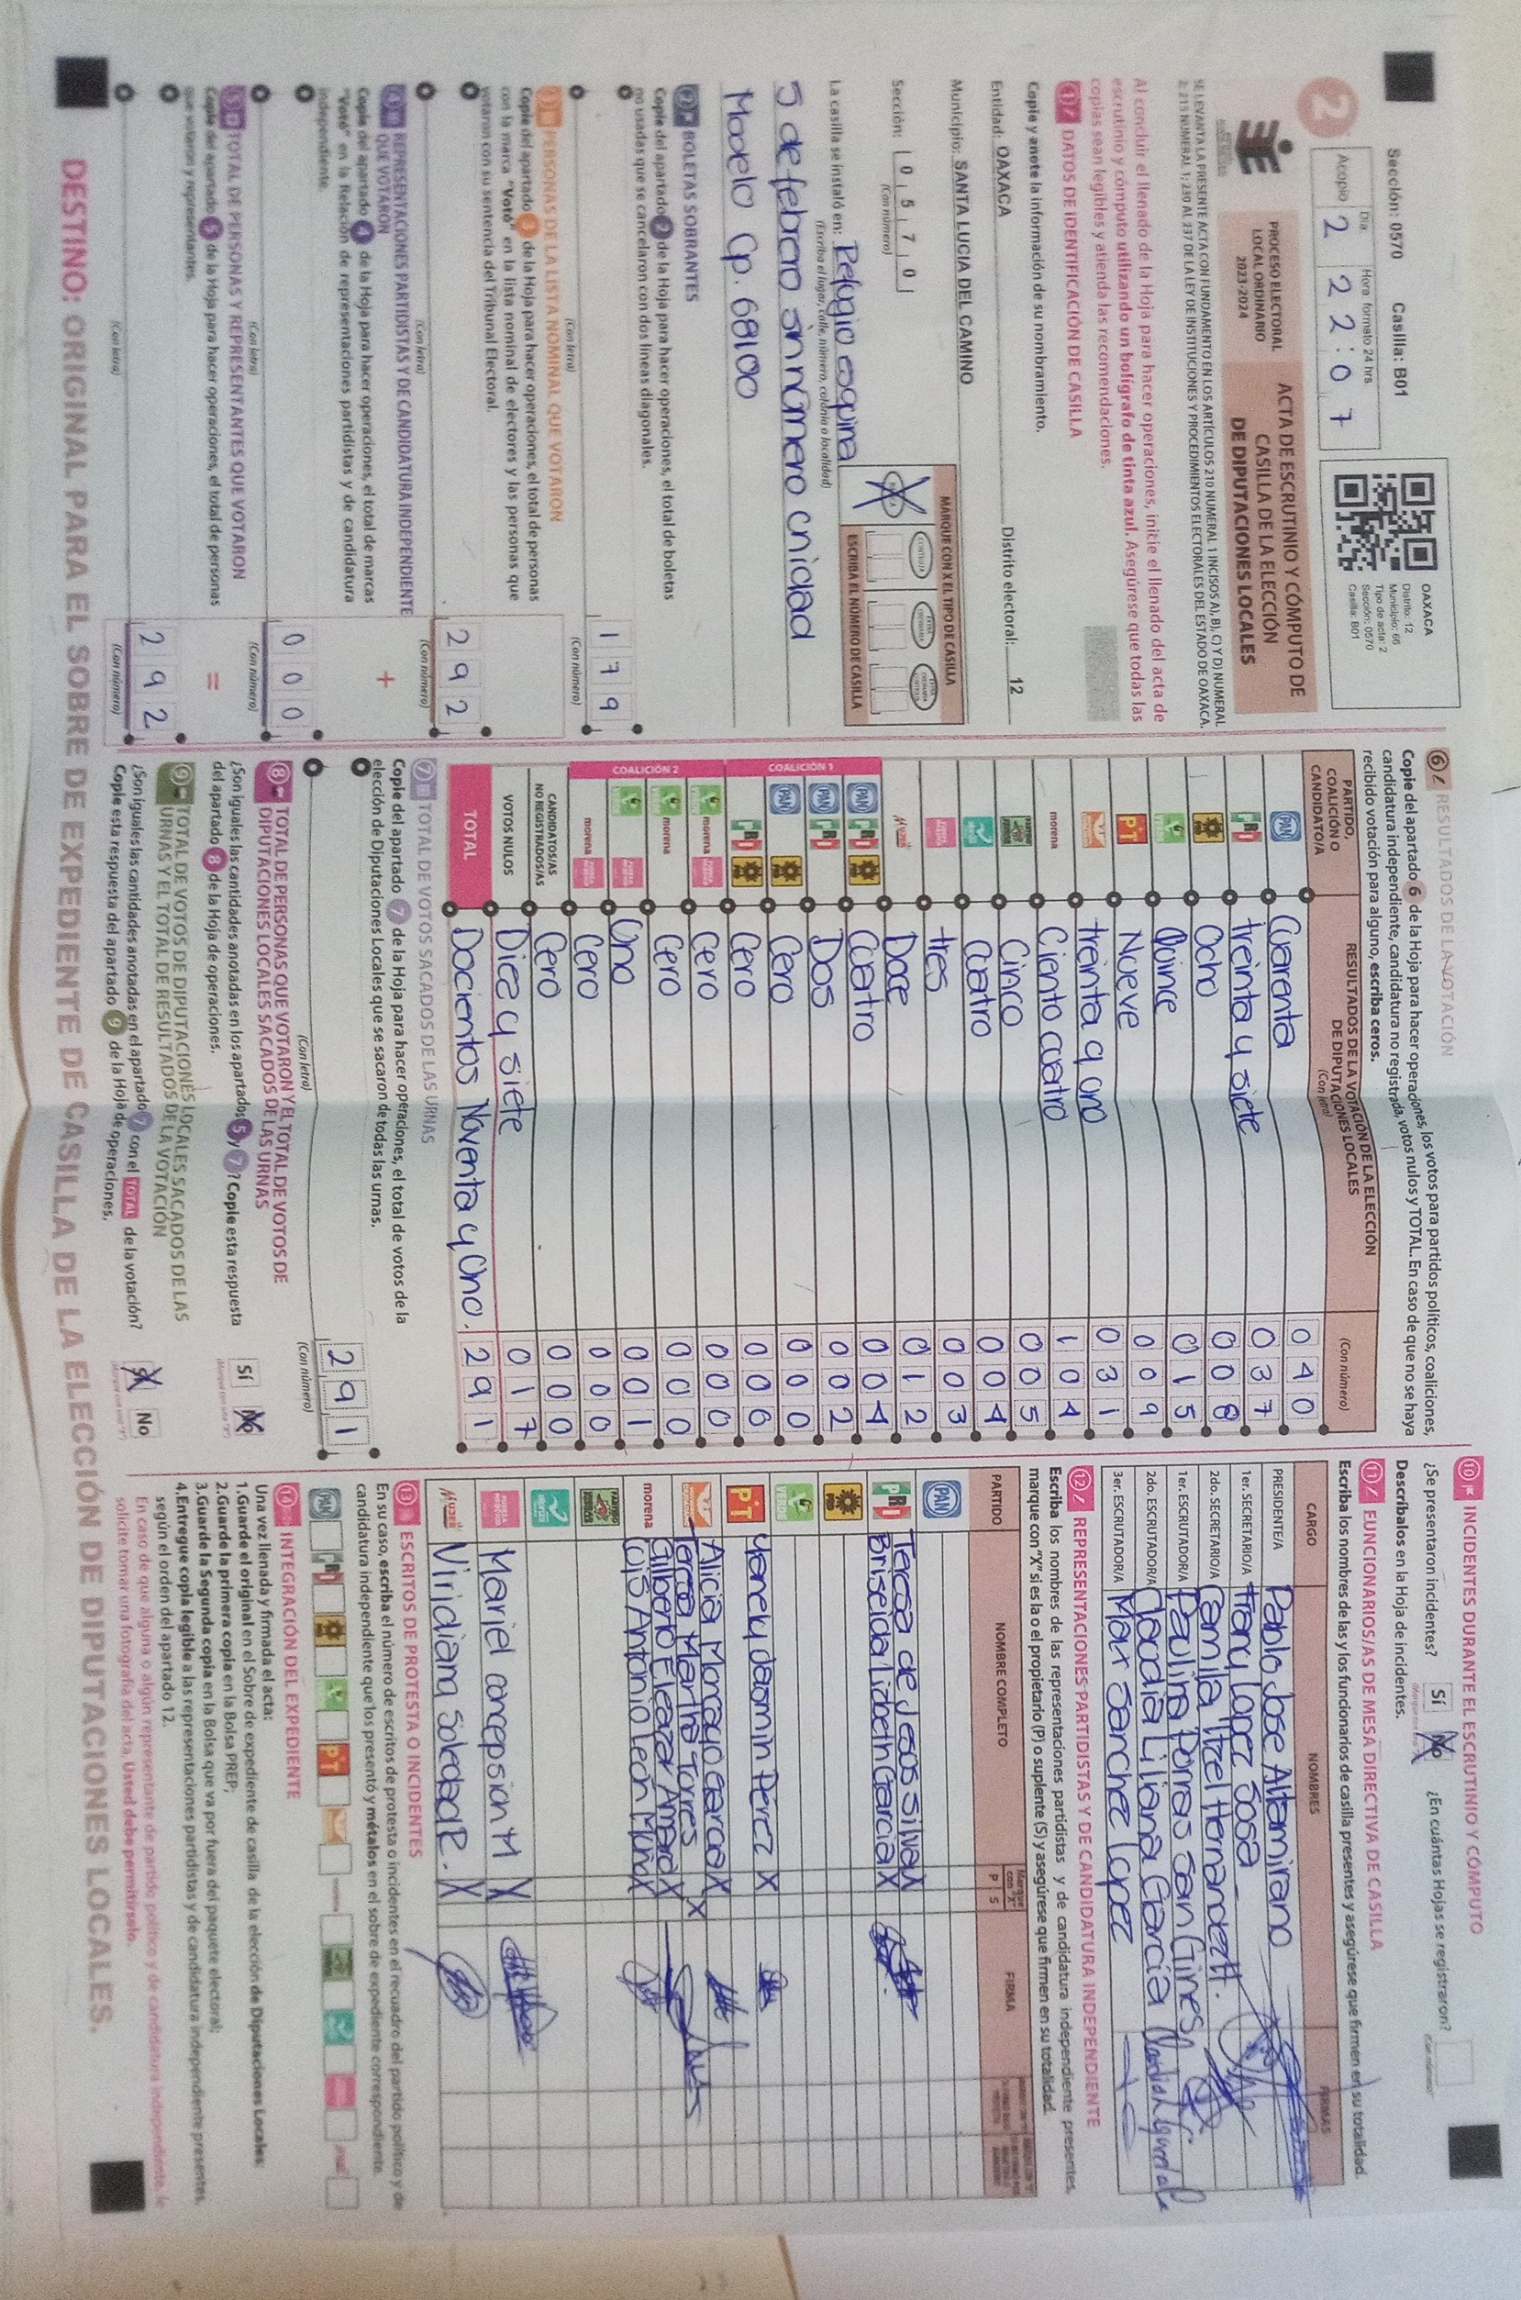 Sección: 0570 Casilla: B01
2
Acopio
Día
Hora formato 24 hrs
2 22:07
OAXACA
Distrito: 12
Municipio: 66
Tipo de acta: 2
Sección: 0570
Casilla: B01
PROCESO ELECTORAL
LOCAL ORDINARIO
2023-2024
ACTA DE ESCRUTINIO Y CÓMPUTO DE
CASILLA DE LA ELECCIÓN
DE DIPUTACIONES LOCALES
SE LEVANTA LA PRESENTE ACTA CON FUNDAMENTO EN LOS ARTÍCULOS 210 NUMERAL 1 INCISOS A), B), C) Y D) NUMERAL
2; 215 NUMERAL 1; 230 AL 237 DE LA LEY DE INSTITUCIONES Y PROCEDIMIENTOS ELECTORALES DEL ESTADO DE OAXACA.
Al concluir el llenado de la Hoja para hacer operaciones, inicie el llenado del acta de
escrutinio y cómputo utilizando un bolígrafo de tinta azul. Asegúrese que todas las
copias sean legibles y atienda las recomendaciones.
1 DATOS DE IDENTIFICACIÓN DE CASILLA
Copie y anote la información de su nombramiento.
Entidad: OAXACA Distrito electoral: 12
Municipio: SANTA LUCIA DEL CAMINO
Sección: 0 5 7 0
(Con número)
MARQUE CON X EL TIPO DE CASILLA
ESCRIBA EL NÚMERO DE CASILLA
La casilla se instaló en: Refugio esquina
(Escriba el lugar, calle, número, colonia o localidad)
5 de febrero sin número Cnidad
Modelo Cp. 68100
2 BOLETAS SOBRANTES
Copie del apartado 2 de la Hoja para hacer operaciones, el total de boletas
no usadas que se cancelaron con dos líneas diagonales.
179
(Con letra) (Con número)
3 PERSONAS DE LA LISTA NOMINAL QUE VOTARON
Copie del apartado 3 de la Hoja para hacer operaciones, el total de personas
con la marca "Votó" en la lista nominal de electores y las personas que
votaron con su sentencia del Tribunal Electoral.
292
(Con letra) (Con número)
4 REPRESENTACIONES PARTIDISTAS Y DE CANDIDATURA INDEPENDIENTE
QUE VOTARON
Copie del apartado 4 de la Hoja para hacer operaciones, el total de marcas
"Votó" en la Relación de representaciones partidistas y de candidatura
independiente.
+
000
(Con letra) (Con número)
5 TOTAL DE PERSONAS Y REPRESENTANTES QUE VOTARON
Copie del apartado 5 de la Hoja para hacer operaciones, el total de personas
que votaron y representantes.
=
292
(Con letra) (Con número)
6 RESULTADOS DE LA VOTACIÓN
Copie del apartado 6 de la Hoja para hacer operaciones, los votos para partidos políticos, coaliciones,
candidatura independiente, candidatura no registrada, votos nulos y TOTAL. En caso de que no se haya
recibido votación para alguno, escriba ceros.
PARTIDO,
COALICIÓN O
CANDIDATO/A
RESULTADOS DE LA VOTACIÓN DE LA ELECCIÓN
DE DIPUTACIONES LOCALES
(Con letra)
(Con número)
PAN Cuarenta 040
PRI treinta y siete 037
PRD Ocho 008
VERDE Quince 015
PT Nueve 009
treinta y uno 031
morena Ciento cuatro 104
Cinco 005
Cuatro 004
tres 003
Doce 012
COALICIÓN 1
PAN PRI PRD Cuatro 004
PAN PRI Dos 002
PAN PRD Cero 000
PRI PRD Cero 000
COALICIÓN 2
morena Cero 000
morena Cero 000
Uno 001
morena Cero 000
CANDIDATOS/AS
NO REGISTRADOS/AS Cero 000
VOTOS NULOS Diez y siete 017
TOTAL Docientos Noventa y Uno. 291
7 TOTAL DE VOTOS SACADOS DE LAS URNAS
Copie del apartado 7 de la Hoja para hacer operaciones, el total de votos de la
elección de Diputaciones Locales que se sacaron de todas las urnas.
291
(Con letra) (Con número)
8 TOTAL DE PERSONAS QUE VOTARON Y EL TOTAL DE VOTOS DE
DIPUTACIONES LOCALES SACADOS DE LAS URNAS
¿Son iguales las cantidades anotadas en los apartados 5 y 7? Copie esta respuesta
del apartado 8 de la Hoja de operaciones.
Sí No
9 TOTAL DE VOTOS DE DIPUTACIONES LOCALES SACADOS DE LAS
URNAS Y EL TOTAL DE RESULTADOS DE LA VOTACIÓN
¿Son iguales las cantidades anotadas en el apartado 7 con el TOTAL de la votación?
Copie esta respuesta del apartado 9 de la Hoja de operaciones.
Sí No
10 INCIDENTES DURANTE EL ESCRUTINIO Y CÓMPUTO
¿Se presentaron incidentes? Sí No ¿En cuántas Hojas se registraron?
Descríbalos en la Hoja de incidentes.
11 FUNCIONARIOS/AS DE MESA DIRECTIVA DE CASILLA
Escriba los nombres de las y los funcionarios de casilla presentes y asegúrese que firmen en su totalidad.
CARGO NOMBRES FIRMAS
PRESIDENTE/A Pablo Jose Altamirano
1er. SECRETARIO/A frany lopez Sosa
2do. SECRETARIO/A Camila Itzel Hernandez H.
1er. ESCRUTADOR/A Paulina Porras San Gines
2do. ESCRUTADOR/A Claudia Liliana Garcia
3er. ESCRUTADOR/A Max Sanchez lopez
12 REPRESENTACIONES PARTIDISTAS Y DE CANDIDATURA INDEPENDIENTE
Escriba los nombres de las representaciones partidistas y de candidatura independiente presentes,
marque con "X" si es la o el propietario (P) o suplente (S) y asegúrese que firmen en su totalidad.
PARTIDO NOMBRE COMPLETO Marque con "X" P S FIRMA
PAN
PRI Teresa de Jesus Silva X
Briseida Lizbeth Garcia X
PRD
VERDE
PT Yenely dasmin Perez X
Alicia Moncayo Garcia X
Teresa Martha Torres X
morena Gilberto Eleazar Amard X
Luis Antonio leon Muño X
Mariel concepsion M X
Viridiana Soledad P. X
13 ESCRITOS DE PROTESTA O INCIDENTES
En su caso, escriba el número de escritos de protesta o incidentes en el recuadro del partido político y de
candidatura independiente que los presentó y métalos en el sobre de expediente correspondiente.
14 INTEGRACIÓN DEL EXPEDIENTE
Una vez llenada y firmada el acta:
1. Guarde el original en el Sobre de expediente de casilla de la elección de Diputaciones Locales;
2. Guarde la primera copia en la Bolsa PREP;
3. Guarde la Segunda copia en la Bolsa que va por fuera del paquete electoral;
4. Entregue copia legible a las representaciones partidistas y de candidatura independiente presentes,
según el orden del apartado 12.
En caso de que alguna o algún representante de partido político y de candidatura independiente, le
solicite tomar una fotografía del acta, Usted debe permitírselo.
DESTINO: ORIGINAL PARA EL SOBRE DE EXPEDIENTE DE CASILLA DE LA ELECCIÓN DE DIPUTACIONES LOCALES.